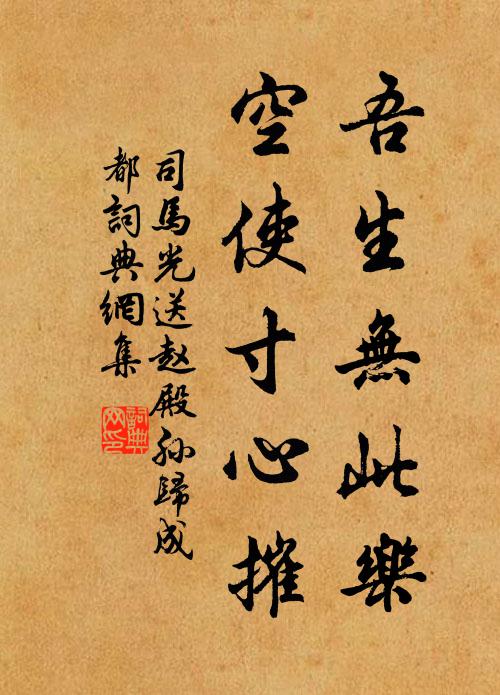 吾生無此樂
空使寸心摧
司馬光送赵殿孙歸成
都詞典網集
詞典
网印